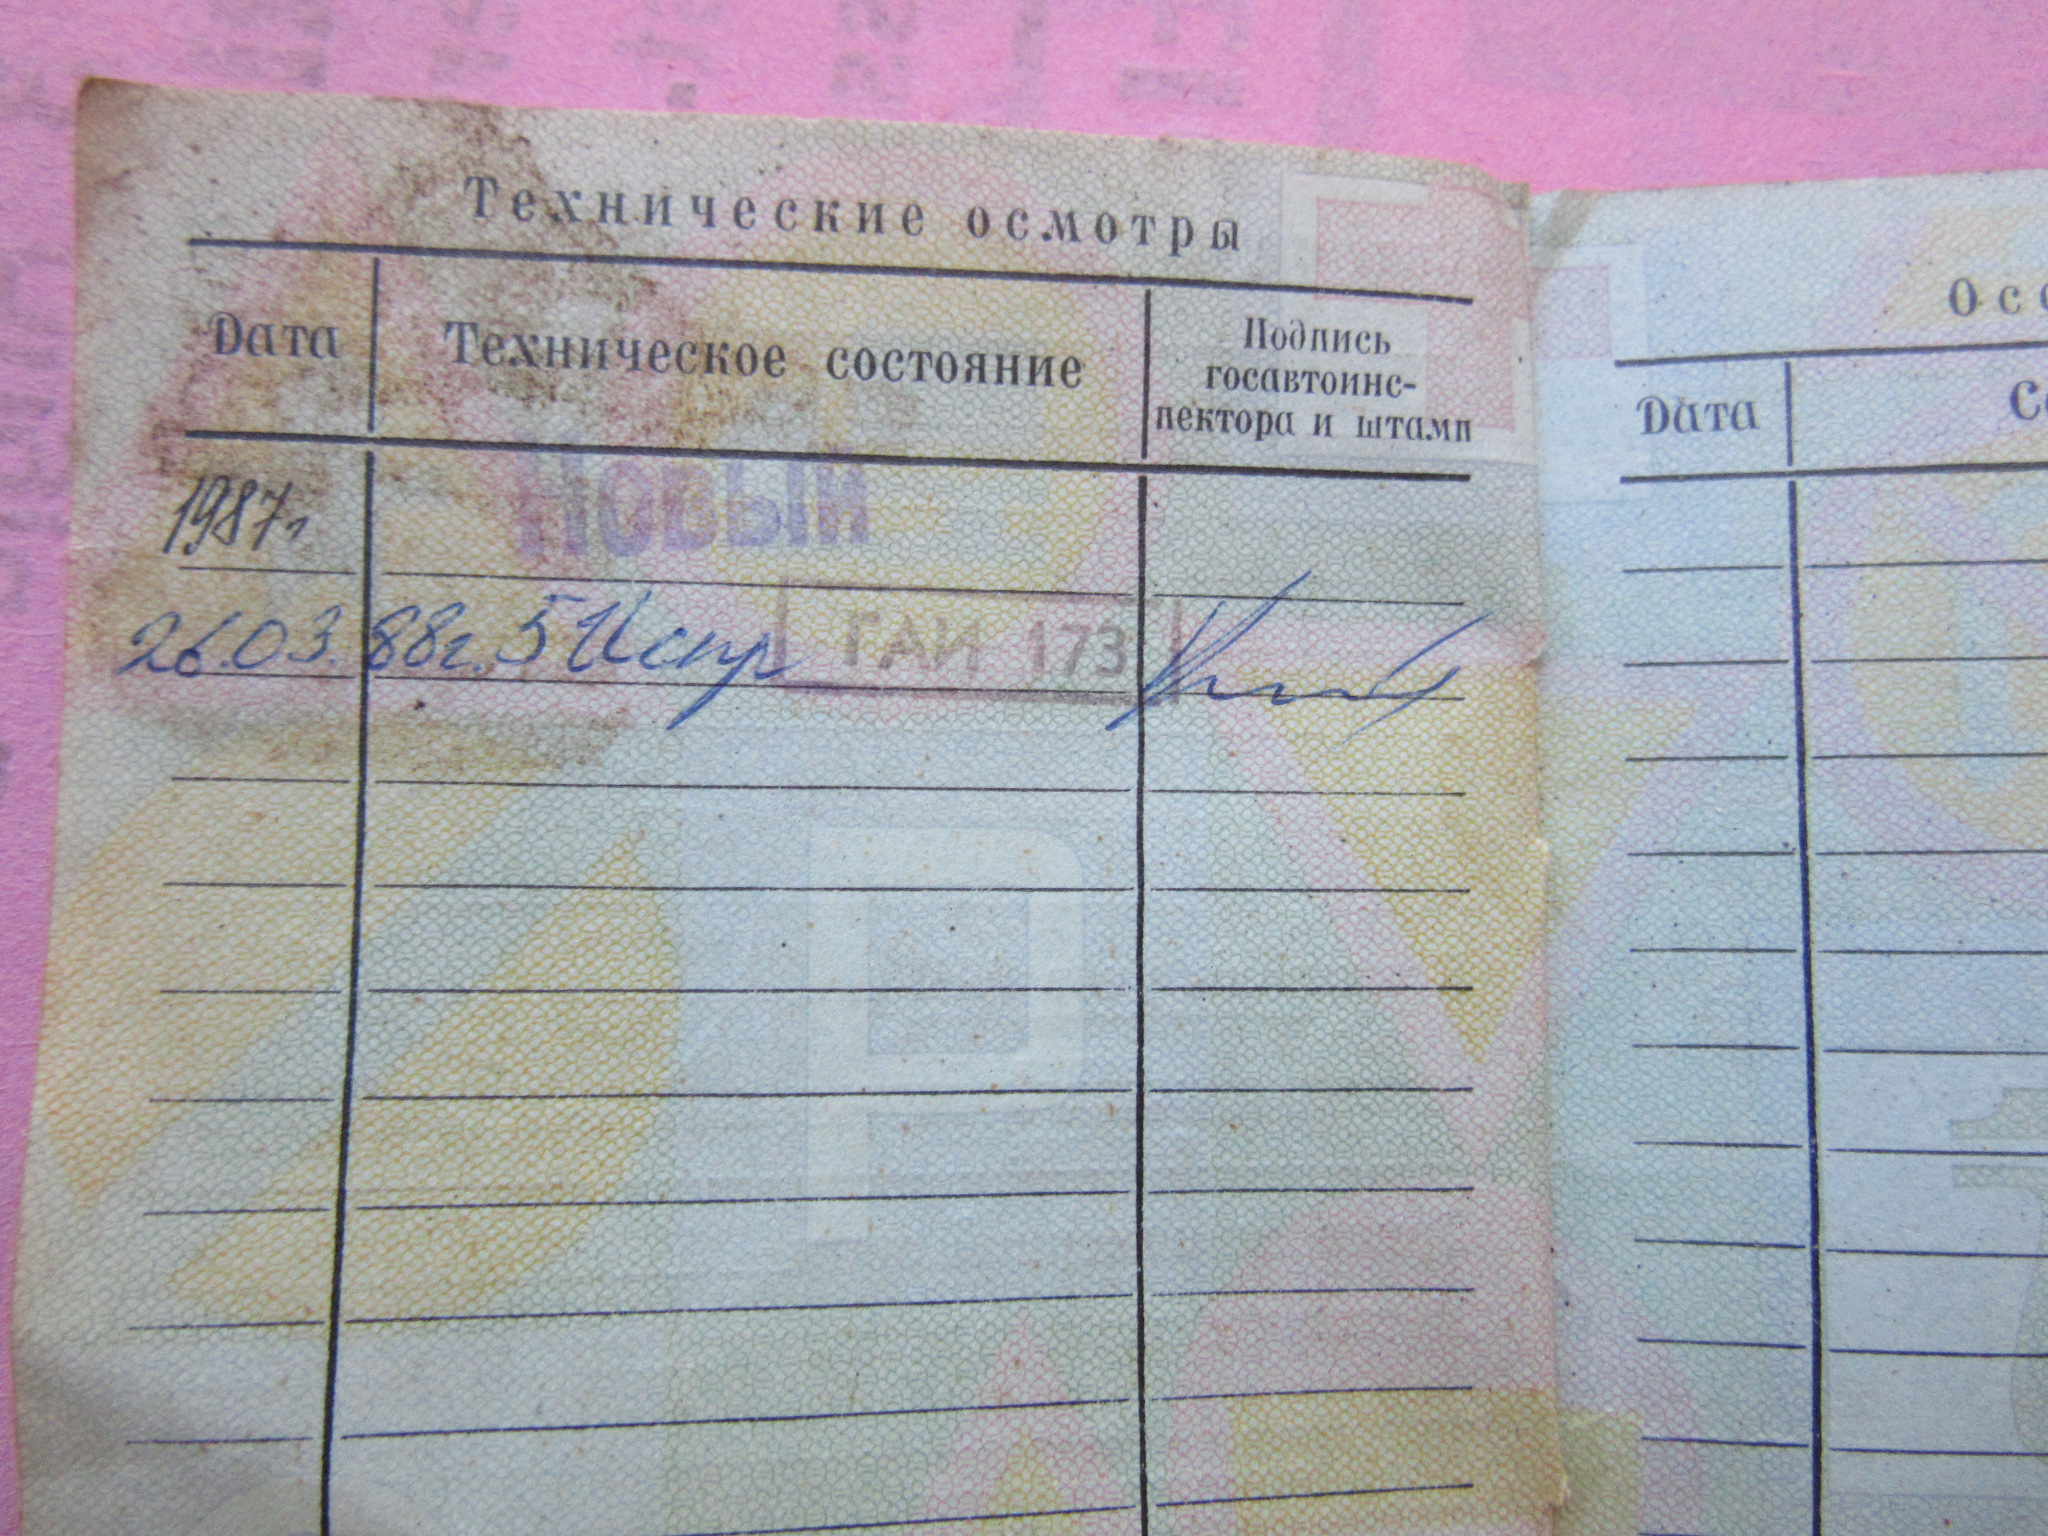 Технические осмотры
Дата
Техническое состояние
Подпись
госавтоинс-
пектора и штамп
1987г
Новый
26.03.88г. 5 Испр
ГАИ 173
Дата